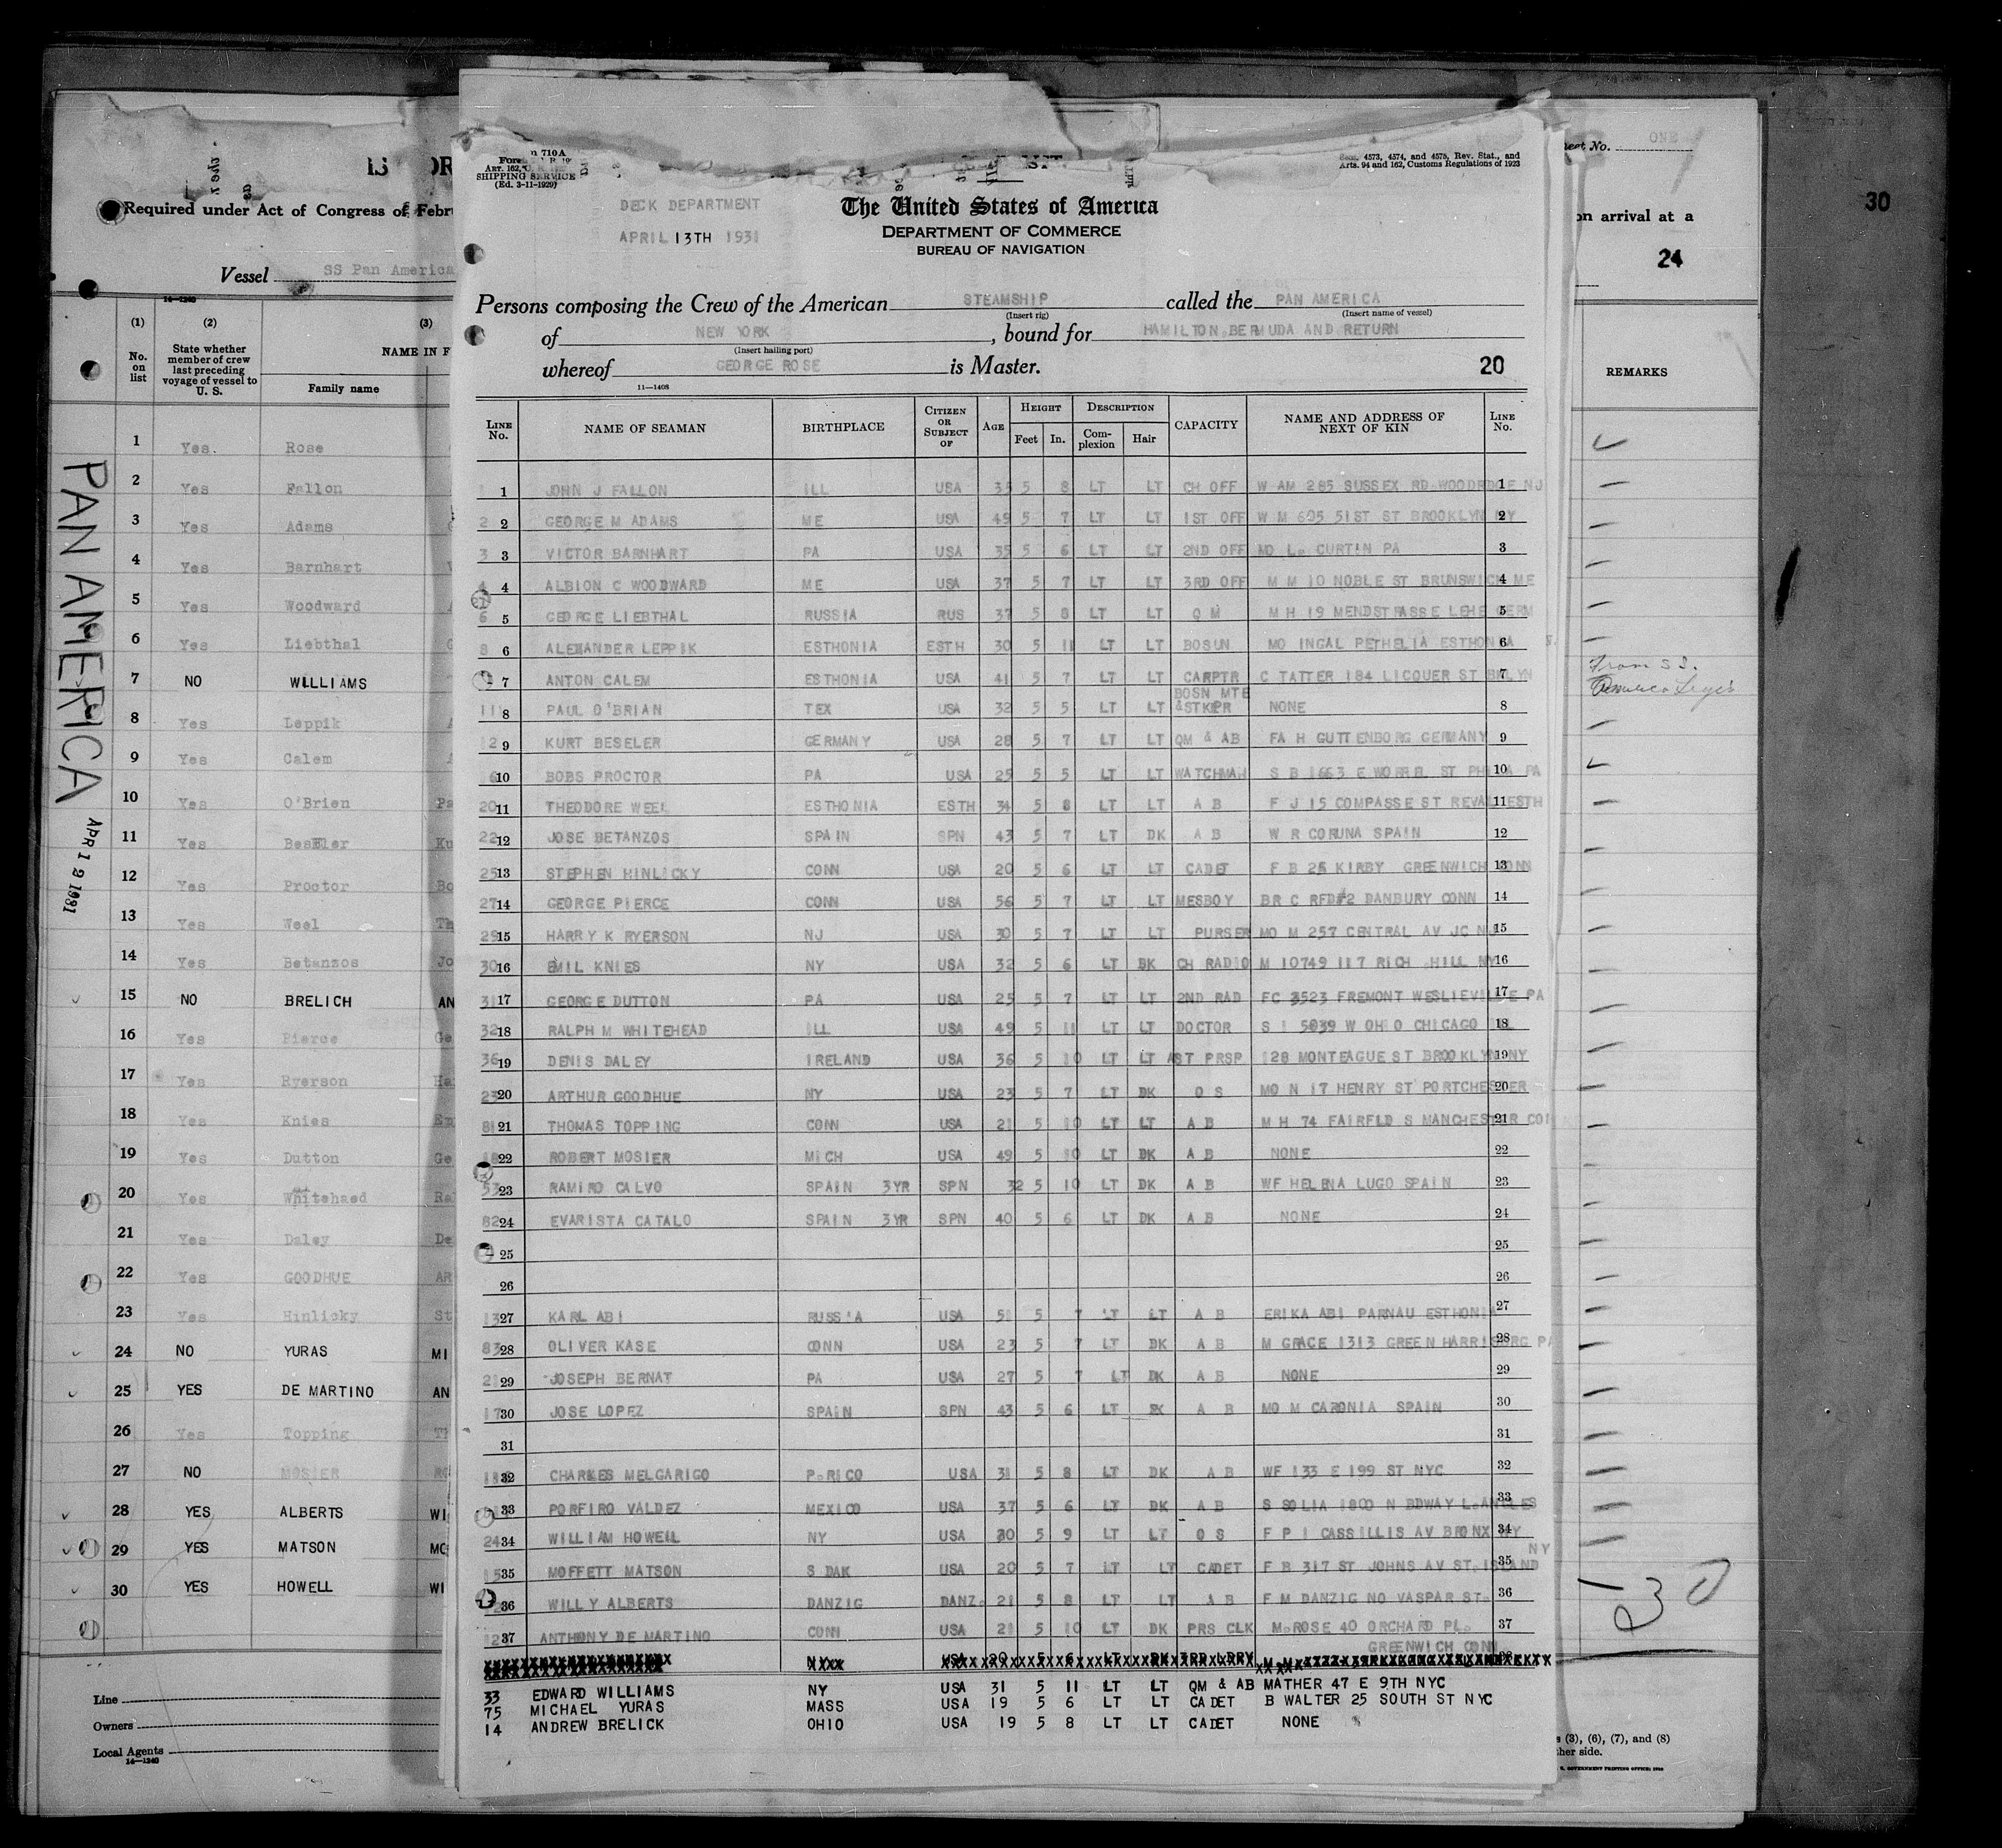 Required under Act of Congress of Febru
Vessel SS Pan America
14—1240
(1) (2) (3)
No. on list
State whether member of crew last preceding voyage of vessel to U. S.
NAME IN F
Family name
1 Yes. Rose
2 Yes Fallon
3 Yes Adams
4 Yes Barnhart
5 Yes Woodward
6 Yes Liebthal
7 NO WILLIAMS
8 Yes Leppik
9 Yes Calem
10 Yes O'Brien Pa
11 Yes Beseler Ku
12 Yes Proctor Bo
13 Yes Weel Th
14 Yes Betanzos Jo
15 NO BRELICH AN
16 Yes Pierce Ge
17 Yes Ryerson Ha
18 Yes Knies Em
19 Yes Dutton Ge
20 Yes Whitehaed Ra
21 Yes Daley De
22 Yes GOODHUE AR
23 Yes Hinlicky St
24 NO YURAS MI
25 YES DE MARTINO AN
26 Yes Topping Th
27 NO MOSIER RO
28 YES ALBERTS WI
29 YES MATSON MO
30 YES HOWELL WI
Line
Owners
Local Agents
14—1240
PAN AMERICA
APR 19 1931
710A
ART. 162,
SHIPPING SERVICE
(Ed. 3-11-1929)
4573, 4574, and 4575, Rev. Stat., and
Arts. 94 and 162, Customs Regulations of 1923
DECK DEPARTMENT
APRIL 13TH 1931
The United States of America
DEPARTMENT OF COMMERCE
BUREAU OF NAVIGATION
Persons composing the Crew of the American STEAMSHIP called the PAN AMERICA
(Insert rig) (Insert name of vessel)
of NEW YORK, bound for HAMILTON, BERMUDA AND RETURN
(Insert hailing port)
whereof GEORGE ROSE is Master. 20
11—1408
LINE No. NAME OF SEAMAN BIRTHPLACE CITIZEN OR SUBJECT OF AGE HEIGHT Feet In. DESCRIPTION Complexion Hair CAPACITY NAME AND ADDRESS OF NEXT OF KIN LINE No.
1 1 JOHN J FALLON ILL USA 35 5 8 LT LT CH OFF W AM 285 SUSSEX RD WOODRDGE NJ 1
2 2 GEORGE M ADAMS ME USA 49 5 7 LT LT 1ST OFF W M 605 51ST ST BROOKLYN NY 2
3 3 VICTOR BARNHART PA USA 35 5 6 LT LT 2ND OFF MO L. CURTIN PA 3
4 4 ALBION C WOODWARD ME USA 37 5 7 LT LT 3RD OFF M M 10 NOBLE ST BRUNSWICK ME 4
6 5 GEORGE LIEBTHAL RUSSIA RUS 37 5 8 LT LT Q M M H 19 MENDSTRASSE LEHE GERM 5
8 6 ALEXANDER LEPPIK ESTHONIA ESTH 30 5 11 LT LT BOSUN MO INGAL PETHELIA ESTHONIA 6
7 ANTON CALEM ESTHONIA USA 41 5 7 LT LT CARPTR C TATTER 184 LICQUER ST BKLYN 7
11 8 PAUL O'BRIAN TEX USA 32 5 5 LT LT BOSN MTE &STKPR NONE 8
12 9 KURT BESELER GERMANY USA 28 5 7 LT LT QM & AB FA H GUTTENBORG GERMANY 9
16 10 BOBS PROCTOR PA USA 25 5 5 LT LT WATCHMAN S B 1663 E WORREL ST PHILA PA 10
20 11 THEODORE WEEL ESTHONIA ESTH 34 5 8 LT LT A B F J 15 COMPASSE ST REVAL ESTH 11
22 12 JOSE BETANZOS SPAIN SPN 43 5 7 LT DK A B W R CORUNA SPAIN 12
25 13 STEPHEN HINLICKY CONN USA 20 5 6 LT LT CADET F B 25 KIRBY GREENWICH CONN 13
27 14 GEORGE PIERCE CONN USA 56 5 7 LT LT MESBOY BR C RFD#2 DANBURY CONN 14
29 15 HARRY K RYERSON NJ USA 30 5 7 LT LT PURSER MO M 257 CENTRAL AV JC NJ 15
30 16 EMIL KNIES NY USA 32 5 6 LT BK CH RADIO M 10749 117 RICH HILL NY 16
31 17 GEORGE DUTTON PA USA 25 5 7 LT LT 2ND RAD FC 3523 FREMONT WESLIEVILLE PA 17
32 18 RALPH M WHITEHEAD ILL USA 49 5 11 LT LT DOCTOR S I 5039 W OHIO CHICAGO 18
36 19 DENIS DALEY IRELAND USA 36 5 10 LT LT AST PRSR 128 MONTEAGUE ST BROOKLYN NY 19
23 20 ARTHUR GOODHUE NY USA 23 5 7 LT DK O S MO N 17 HENRY ST PORTCHESTER 20
81 21 THOMAS TOPPING CONN USA 21 5 10 LT LT A B M H 74 FAIRFLD S MANCHESTER CON 21
22 ROBERT MOSIER MICH USA 49 5 10 LT DK A B NONE 22
53 23 RAMIRO CALVO SPAIN 3YR SPN 32 5 10 LT DK A B WF HELENA LUGO SPAIN 23
82 24 EVARISTA CATALO SPAIN 3YR SPN 40 5 6 LT DK A B NONE 24
25 25
26 26
13 27 KARL ABI RUSSIA USA 51 5 7 LT LT A B ERIKA ABI PARNAU ESTHONI 27
83 28 OLIVER KASE CONN USA 23 5 7 LT DK A B M GRACE 1313 GREEN HARRISBRG PA 28
21 29 JOSEPH BERNAT PA USA 27 5 7 LT DK A B NONE 29
17 30 JOSE LOPEZ SPAIN SPN 43 5 6 LT DK A B MO M CARONIA SPAIN 30
31 31
32 CHARLES MELGARIGO P.RICO USA 31 5 8 LT DK A B WF 133 E 199 ST NYC 32
33 PORFIRO VALDEZ MEXICO USA 37 5 6 LT DK A B S SOLIA 1800 N BDWAY L.ANGLES 33
24 34 WILLIAM HOWELL NY USA 20 5 9 LT LT O S F P I CASSILLIS AV BRONX NY 34
15 35 MOFFETT MATSON S DAK USA 20 5 7 LT LT CADET F B 317 ST JOHNS AV ST.ISLAND NY 35
36 WILLY ALBERTS DANZIG DANZ. 21 5 8 LT LT A B F M DANZIG NO VASPAR ST. 36
12 37 ANTHONY DE MARTINO CONN USA 21 5 10 LT DK PRS CLK M.ROSE 40 ORCHARD PL. 37
GREENWICH CONN
33 EDWARD WILLIAMS NY USA 31 5 11 LT LT QM & AB MATHER 47 E 9TH NYC
75 MICHAEL YURAS MASS USA 19 5 6 LT LT CADET B WALTER 25 SOUTH ST NYC
14 ANDREW BRELICK OHIO USA 19 5 8 LT LT CADET NONE
Sheet No. ONE
30
on arrival at a
24
REMARKS
From S S.
America Legion
30
s (3), (6), (7), and (8)
her side.
U. S. GOVERNMENT PRINTING OFFICE: 1930